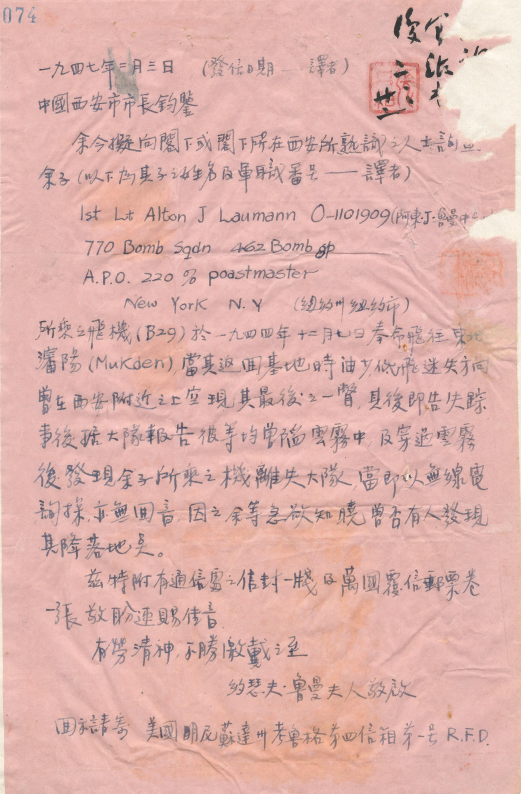 074
一九四七年二月三日 (發信日期——譯者)
中國西安市市長鈞鑒
余今擬向閣下或閣下所在西安所熟識之人士詢
余子(以下為其子之姓名及軍職番號——譯者)
1st Lt Alton J Laumann O-1101909 (阿東·J·魯曼中
770 Bomb Sqdn 462 Bomb gp
A.P.O. 220 % poastmaster
New York N.Y (紐約州紐約市)
所乘之飛機(B29)於一九四四年十二月七日奉命飛往東北
瀋陽(Mukden)當其返回基地時油少低飛迷失方向
曾在西安附近之上空現其最後之一瞥,其後即告失踪
事後據大隊報告彼等均曾陷雲霧中,及穿過雲霧
後發現余子所乘之機離失大隊,當即以無線電
詢探,亦無回音,因之余等急欲知曉曾否有人發現
其降落地點。
茲特附有通信處之信封一牋及萬國覆信郵票卷
一張敬盼速賜佳音
有勞清神,不勝感戴之至
約瑟夫·魯曼夫人敬啟
回示請寄 美國明尼蘇達州考魯格第四信箱第一号 R.F.D.